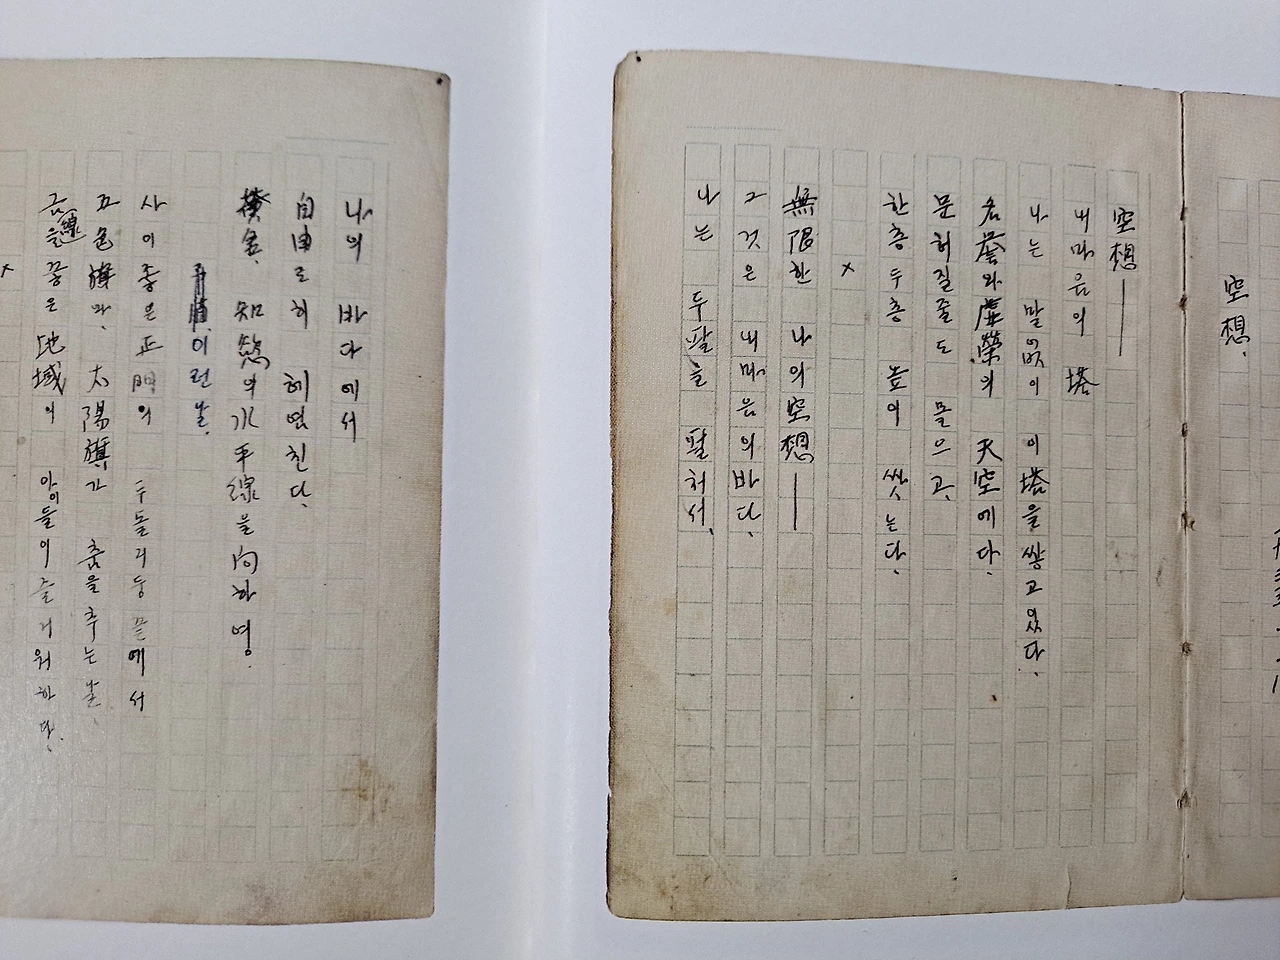 空想.
空想―
내마음의 塔
나는 말없이 이塔을 쌓고있다.
名誉와虛榮의 天空에다.
문허질줄도 몰으고,
한층두층 높이 쌋는다.
×
無限한 나의空想―
그것은 내마음의바다.
나는 두팔을 펼처서,
나의 바다에서
自由로히 헤염친다.
黃金, 知慾의水平線을向하여.
矛盾.이런날.
사이좋은正門의 두돌긔둥끝에서
五色旗와, 太陽旗가 춤을추는날,
금線을끟은地域의 아이들이즐거워하다,
×